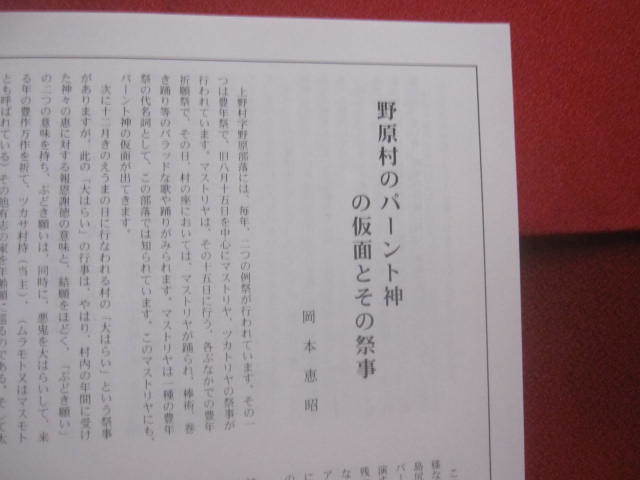 野原村のパーント神
の仮面とその祭事
岡本恵昭
上野村字野原部落には、毎年、二つの例祭が行われています。その一
つは豊年祭で、旧八月十五日を中心にマストリヤ、ツカトリヤの祭事が
行われています。マストリヤは、その十五日に行う、各ぶなかでの豊年
祈願祭で、その日、村の座においては、マストリヤが踊られ、棒術、巻
き踊り等のバラッドな歌や踊りがみられます。マストリヤは一種の豊年
祭の代名詞として、この部落では知られています。このマストリヤにも、
パーント神の仮面が出てきます。
次に十二月きのえうまの日に行なわれる村の「大はらい」という祭事
がありますが、此の「大はらい」の行事は、やはり、村内の年間に受け
た神々の恵に対する報恩謝徳の意味と、結願をほどく、「ぶどき願い」
の二つの意味を持ち、ぶどき願いは、同時に、悪鬼を大はらいして、来
る年の豊作万作を祈て、ツカサ村持（当主）、（ムラモト又はマスモト
とも呼ばれている）その他有志の家を年齢順に巡るのである。そして大
こ
様な
島尻
パー
演す
残
な
ア
に
の